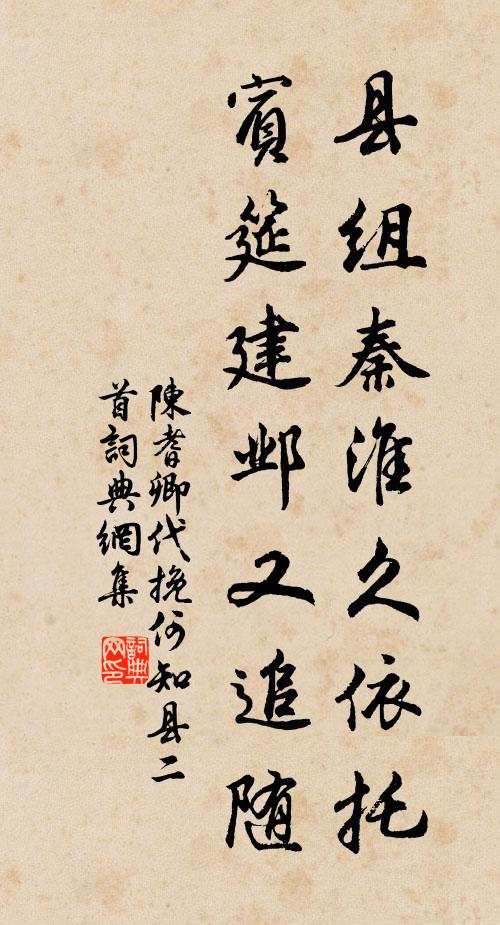 县组秦淮久依托
賓筵建邺又追随
陳耆卿代挽何知县二
首詞典網集
詞典网印